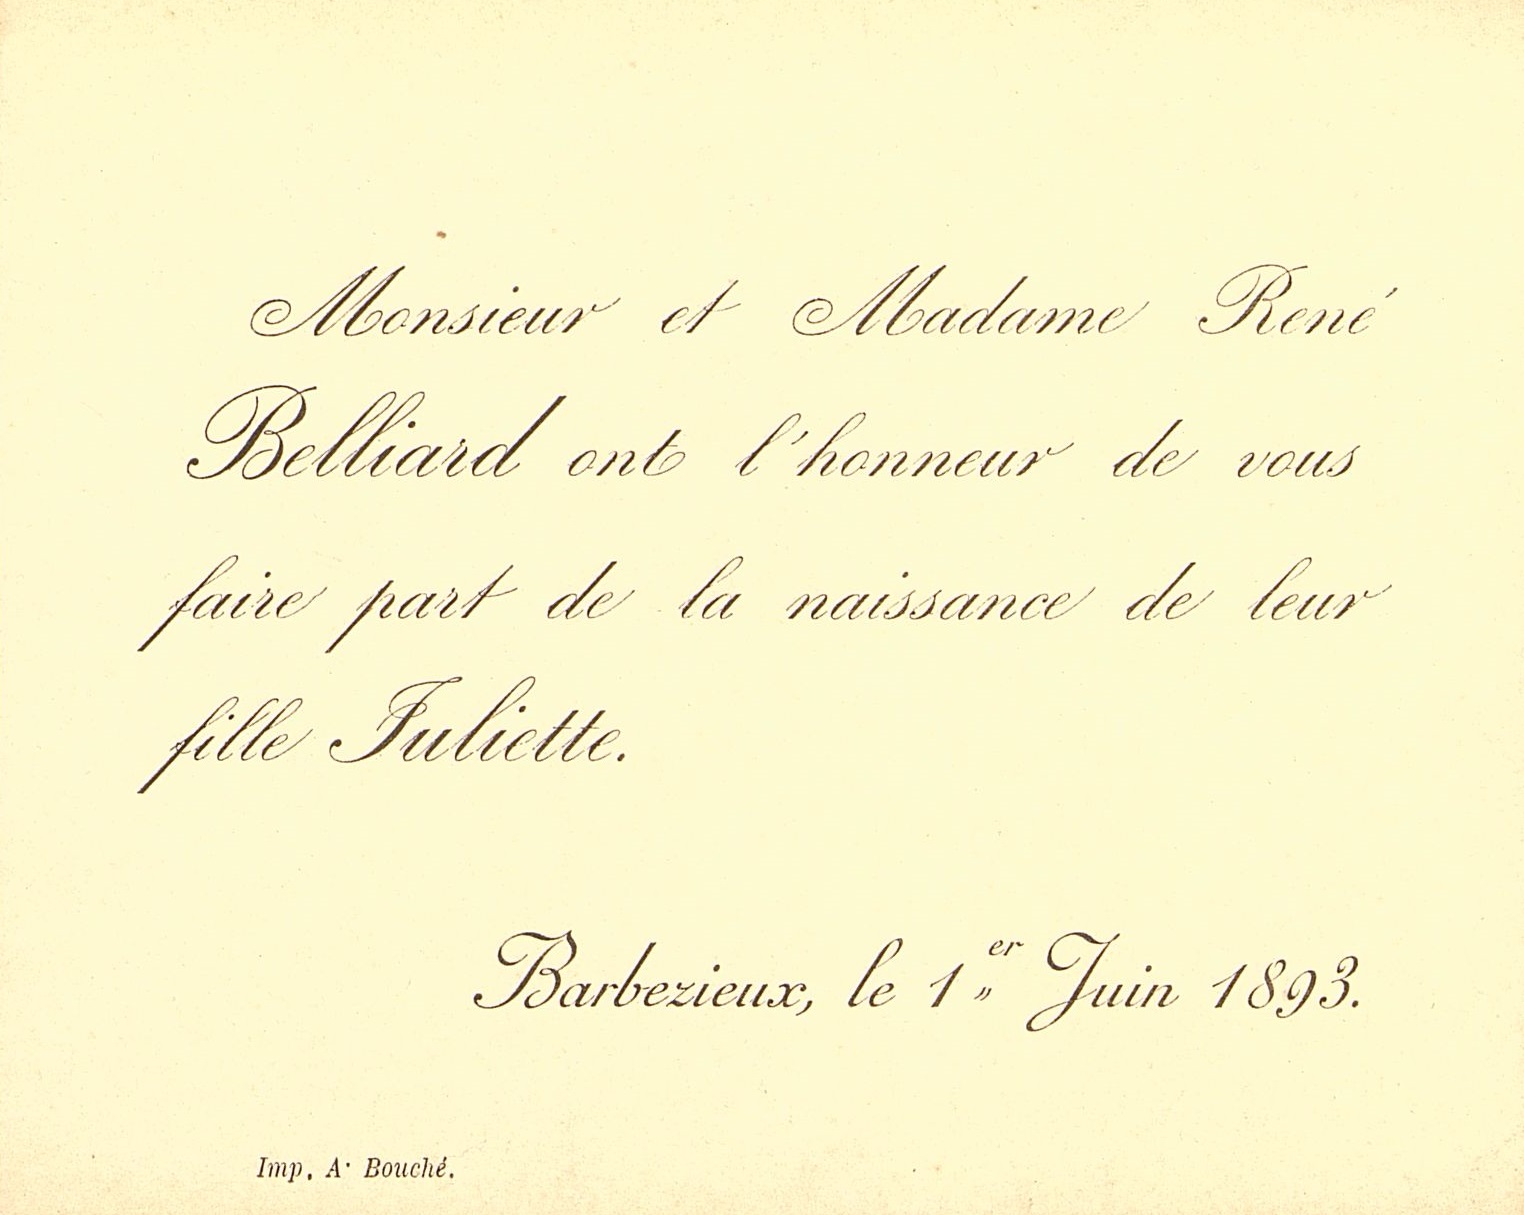 Monsieur et Madame René
Belliard ont l'honneur de vous
faire part de la naissance de leur
fille Juliette.
Barbezieux, le 1er Juin 1893.
Imp. A. Bouché.